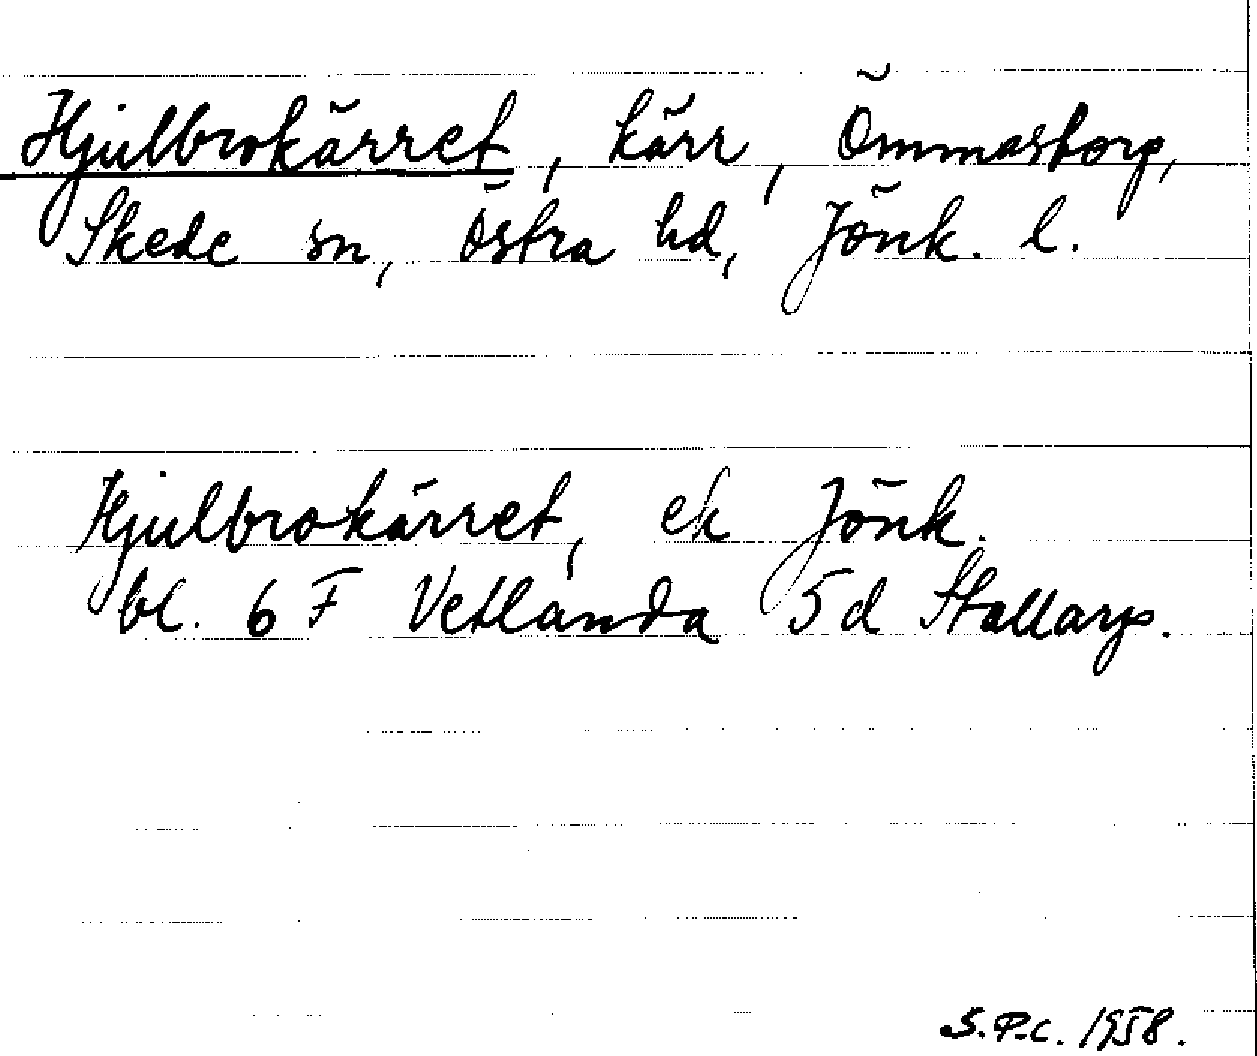 Hjulbrokärret, kärr, Ömmastorp,
Skede sn, Östra hd, Jönk. l.
Hjulbrokärret, ek Jönk.
bl. 6 F Vetlanda 5d Stallarp.
S.P.C. 1958.